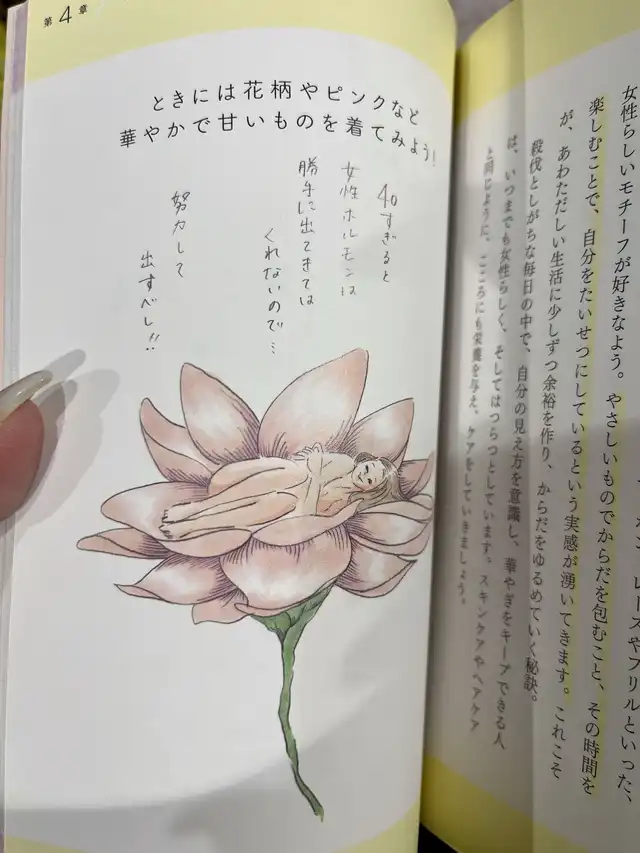 第4章
ときには花柄やピンクなど
華やかで甘いものを着てみよう!
40すぎると
女性ホルモンは
勝手に出てきては
くれないので…
努力して
出すべし!!
女性らしいモチーフが好きなよう。やさしいものでからだを包むこと、その時間を
楽しむことで、自分をたいせつにしているという実感が湧いてきます。これこそ
が、あわただしい生活に少しずつ余裕を作り、からだをゆるめていく秘訣。
殺伐としがちな毎日の中で、自分の見え方を意識し、華やぎをキープできる人
は、いつまでも女性らしく、そしてはつらつとしています。スキンケアやヘアケア
と同じように、こころにも栄養を与え、ケアをしていきましょう。